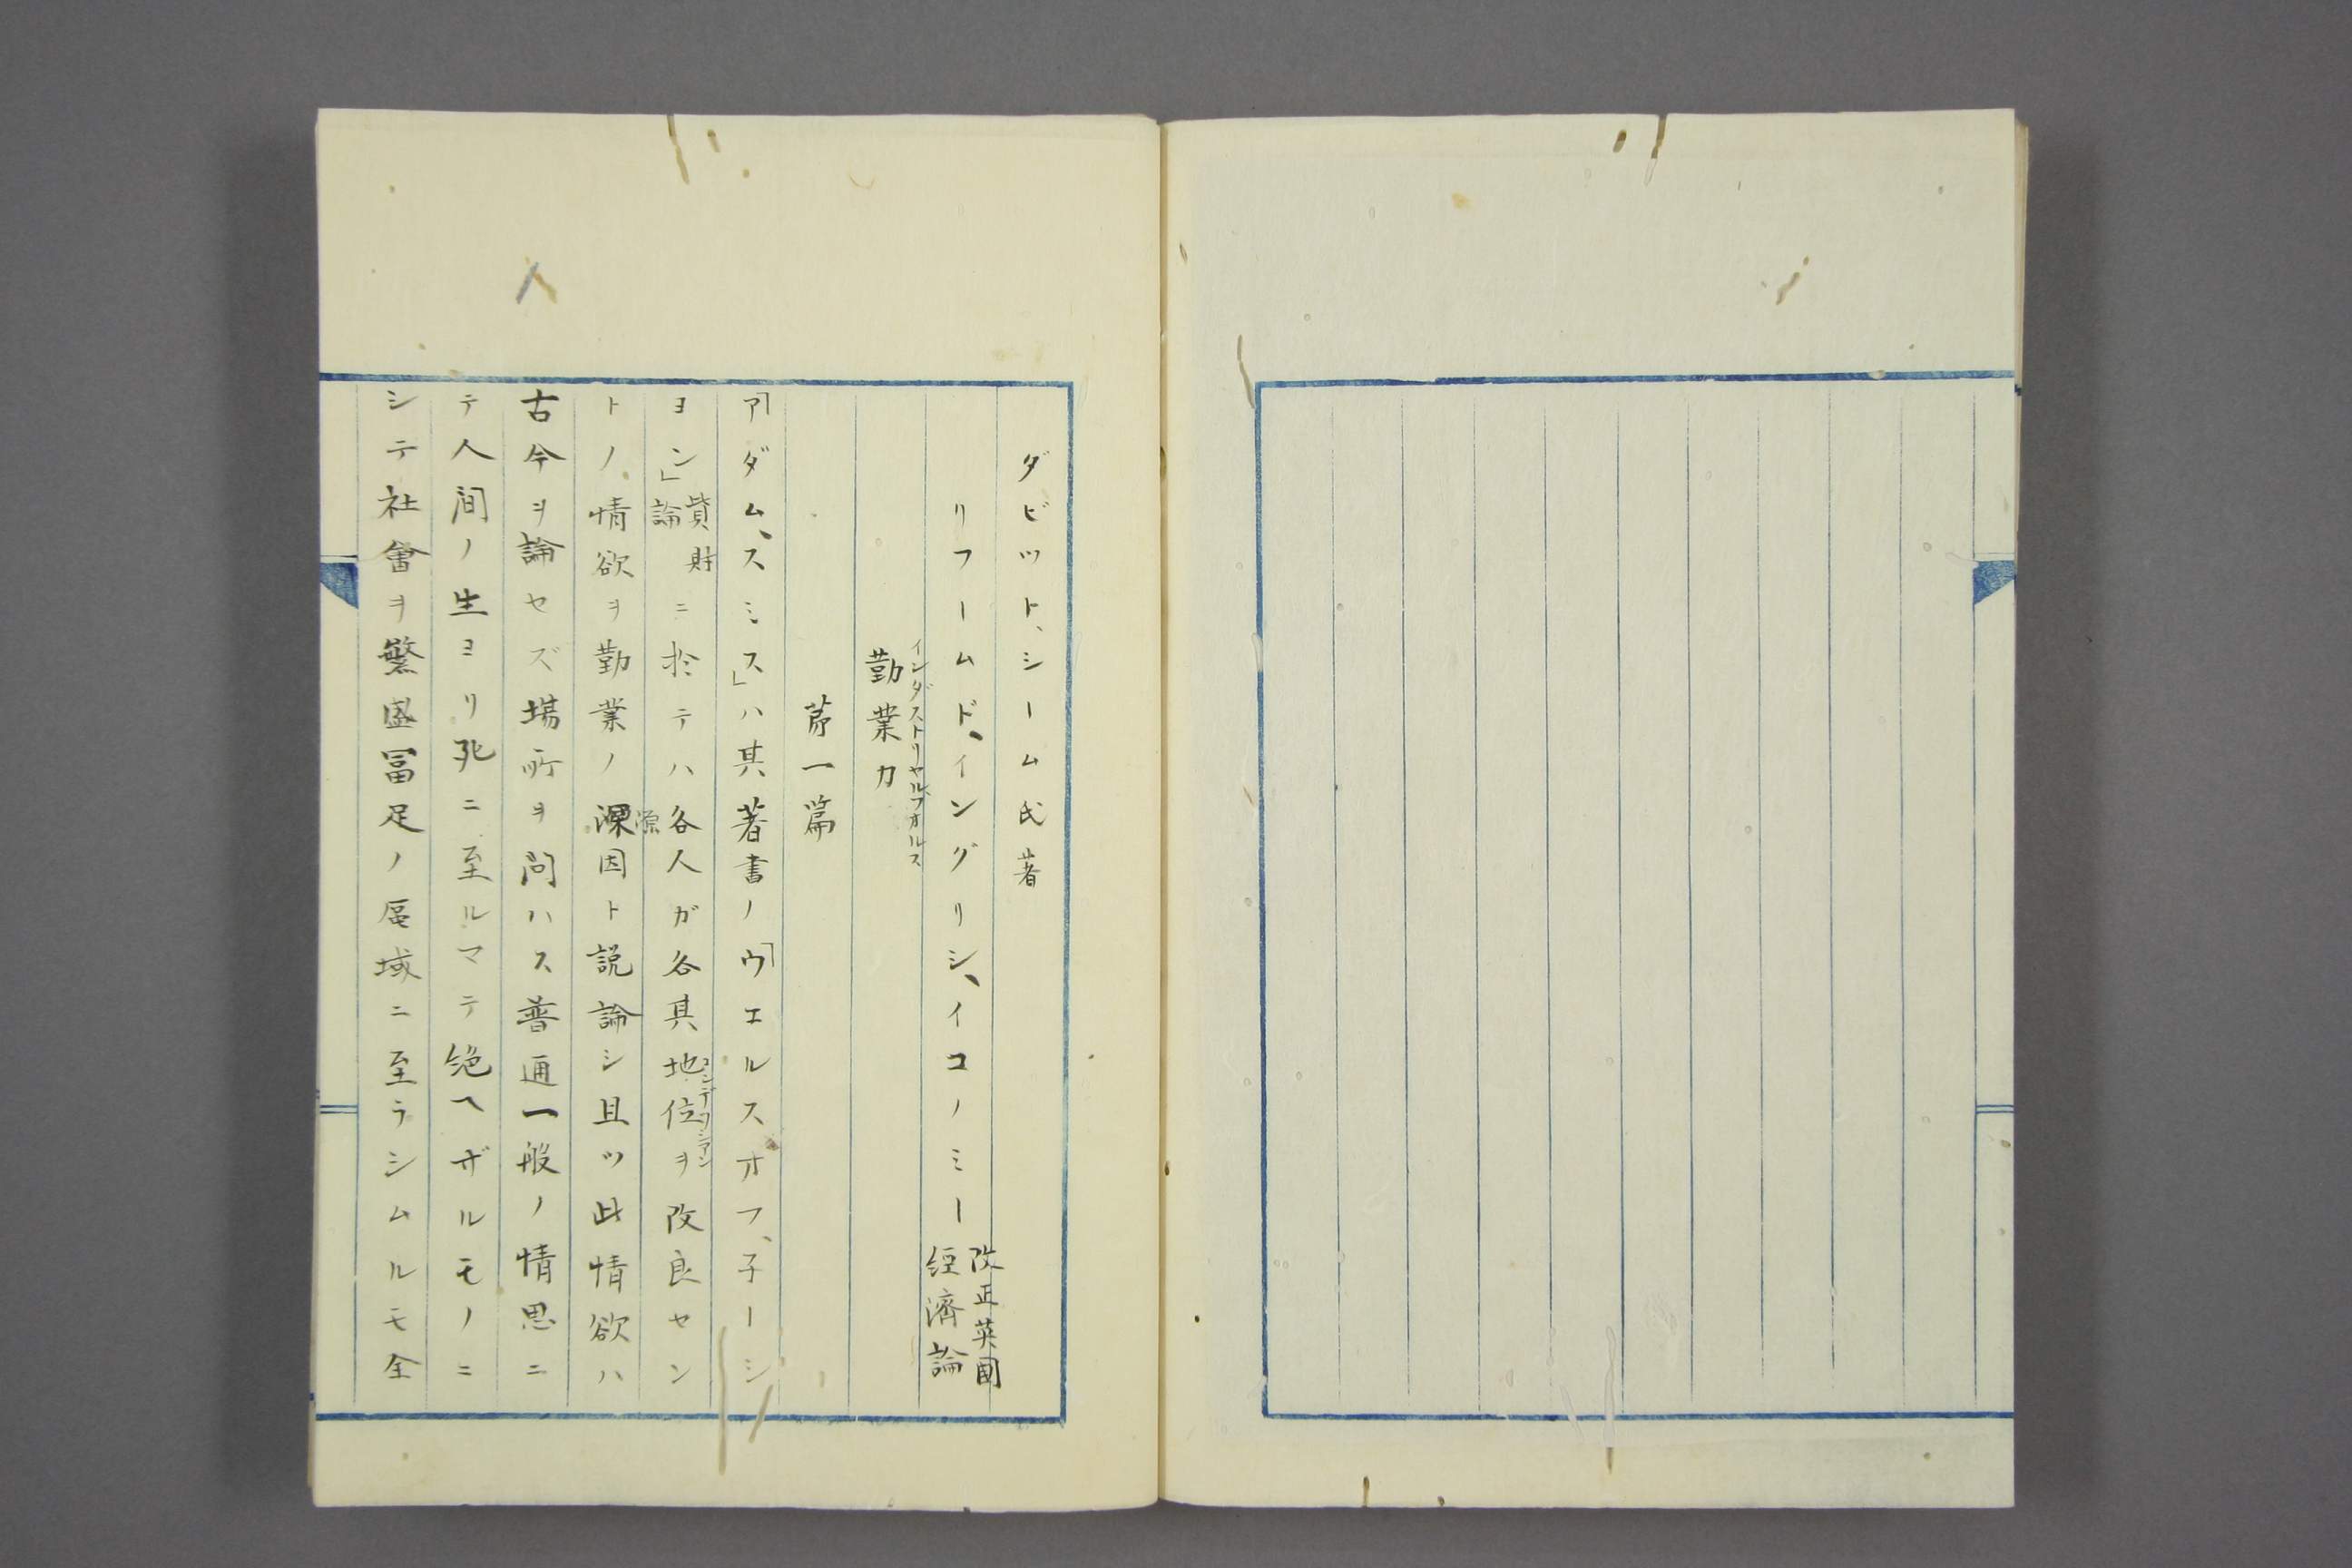 ダビット、シーム氏著
リフームド、イングリシ、イコノミー 改正英國經濟論
インダストリヤル、フオルス
勤業力
第一篇
「アダム、スミス」ハ其著書ノ「ウエルスオフ、子ーシ
ヨン」論貨財ニ於テハ各人ガ各其地位ヲ改良セン
コンデーシアン
トノ情欲ヲ勤業ノ源因ト説論シ且ツ此情欲ハ
源
古今ヲ論セズ場所ヲ問ハス普通一般ノ情思ニ
テ人間ノ生ヨリ死ニ至ルマテ絶ヘザルモノニ
シテ社會ヲ繁盛冨足ノ區域ニ至ラシムルモ全